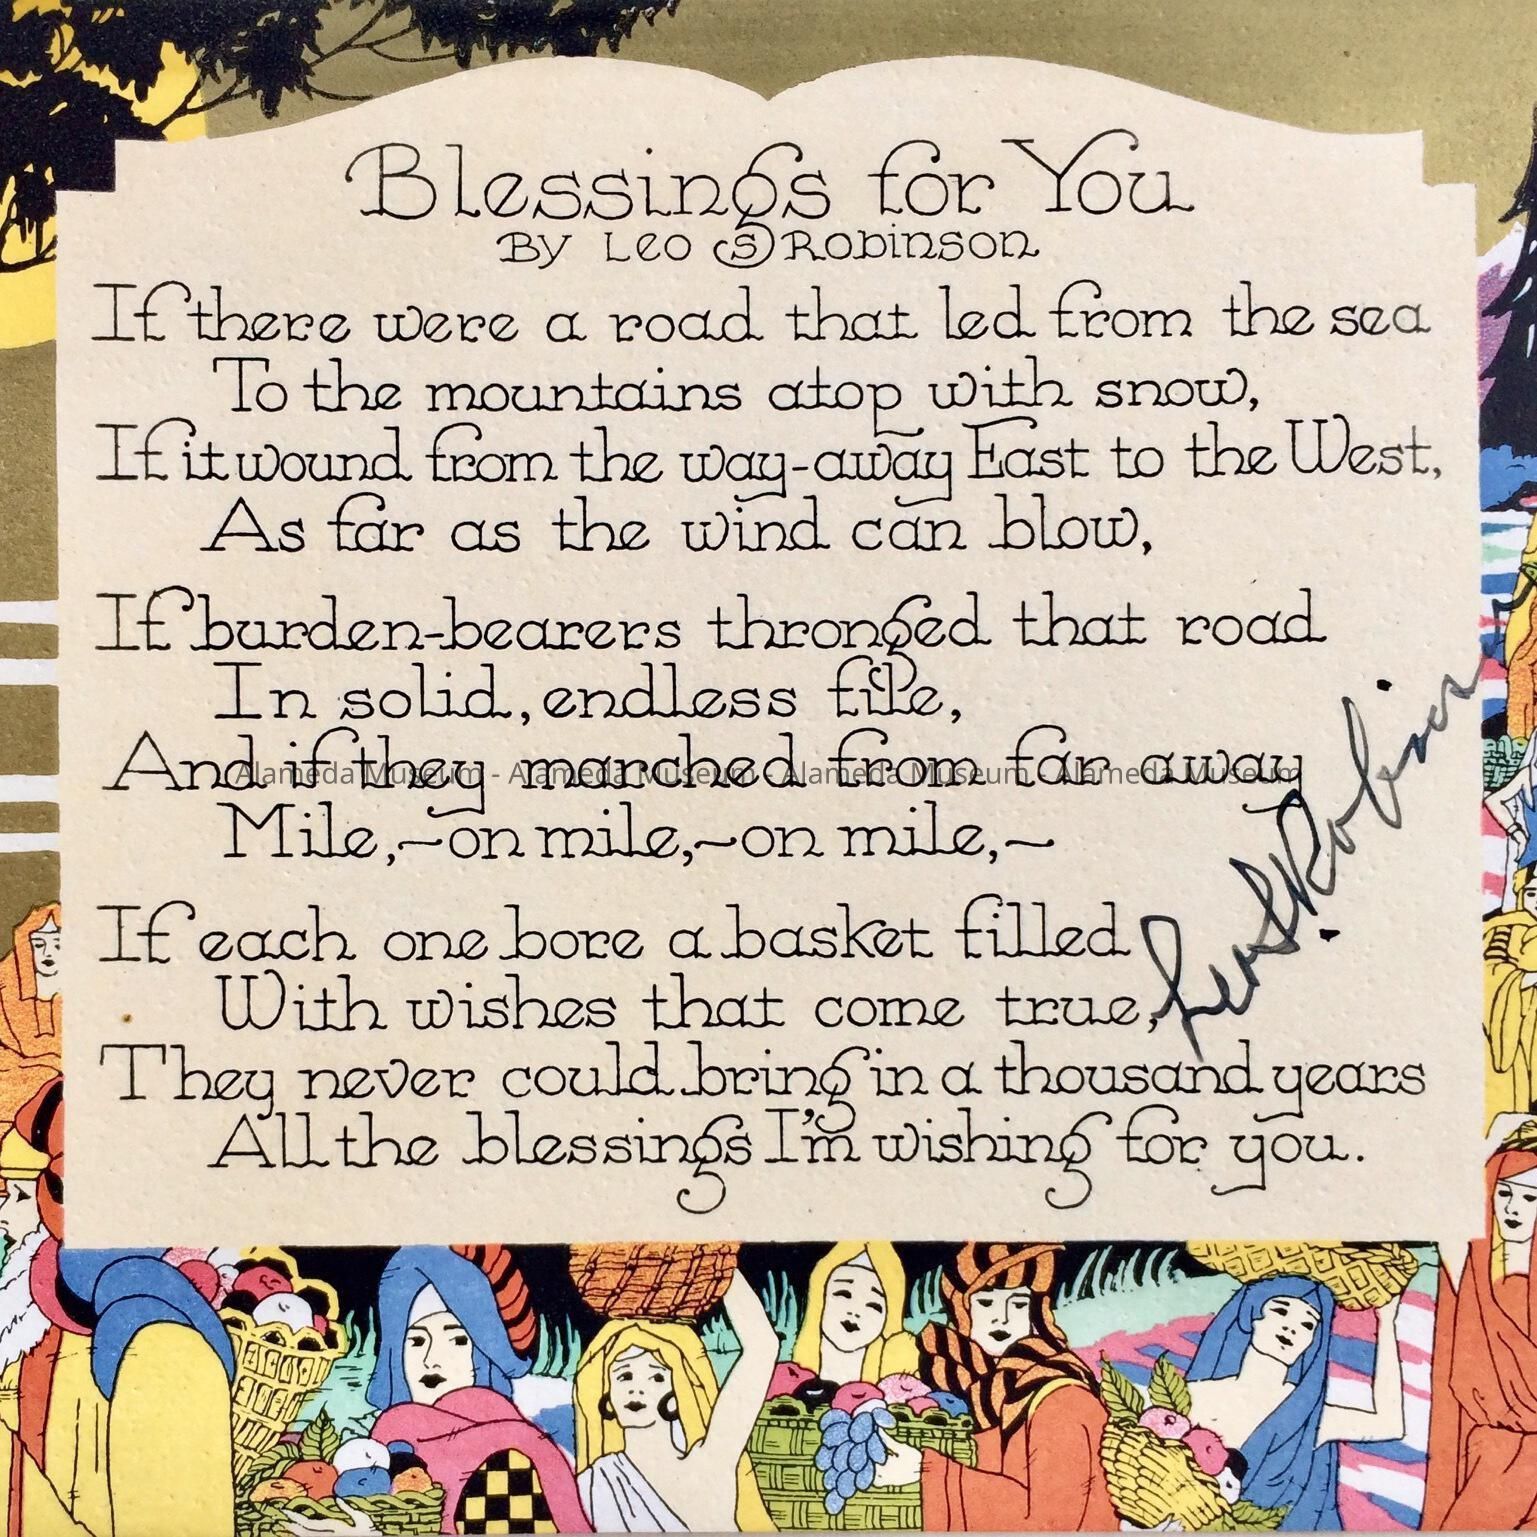 Blessings for You
By Leo S Robinson
If there were a road that led from the sea
To the mountains atop with snow,
If it wound from the way-away East to the West,
As far as the wind can blow,
If burden-bearers thronged that road
In solid, endless file,
And if they marched from far away
Alameda Museum - Alameda Museum - Alameda Museum - Alameda Museum
Mile,~on mile,~on mile,~
If each one bore a basket filled
With wishes that come true,
Leo S. Robinson
They never could bring in a thousand years
All the blessings I'm wishing for you.